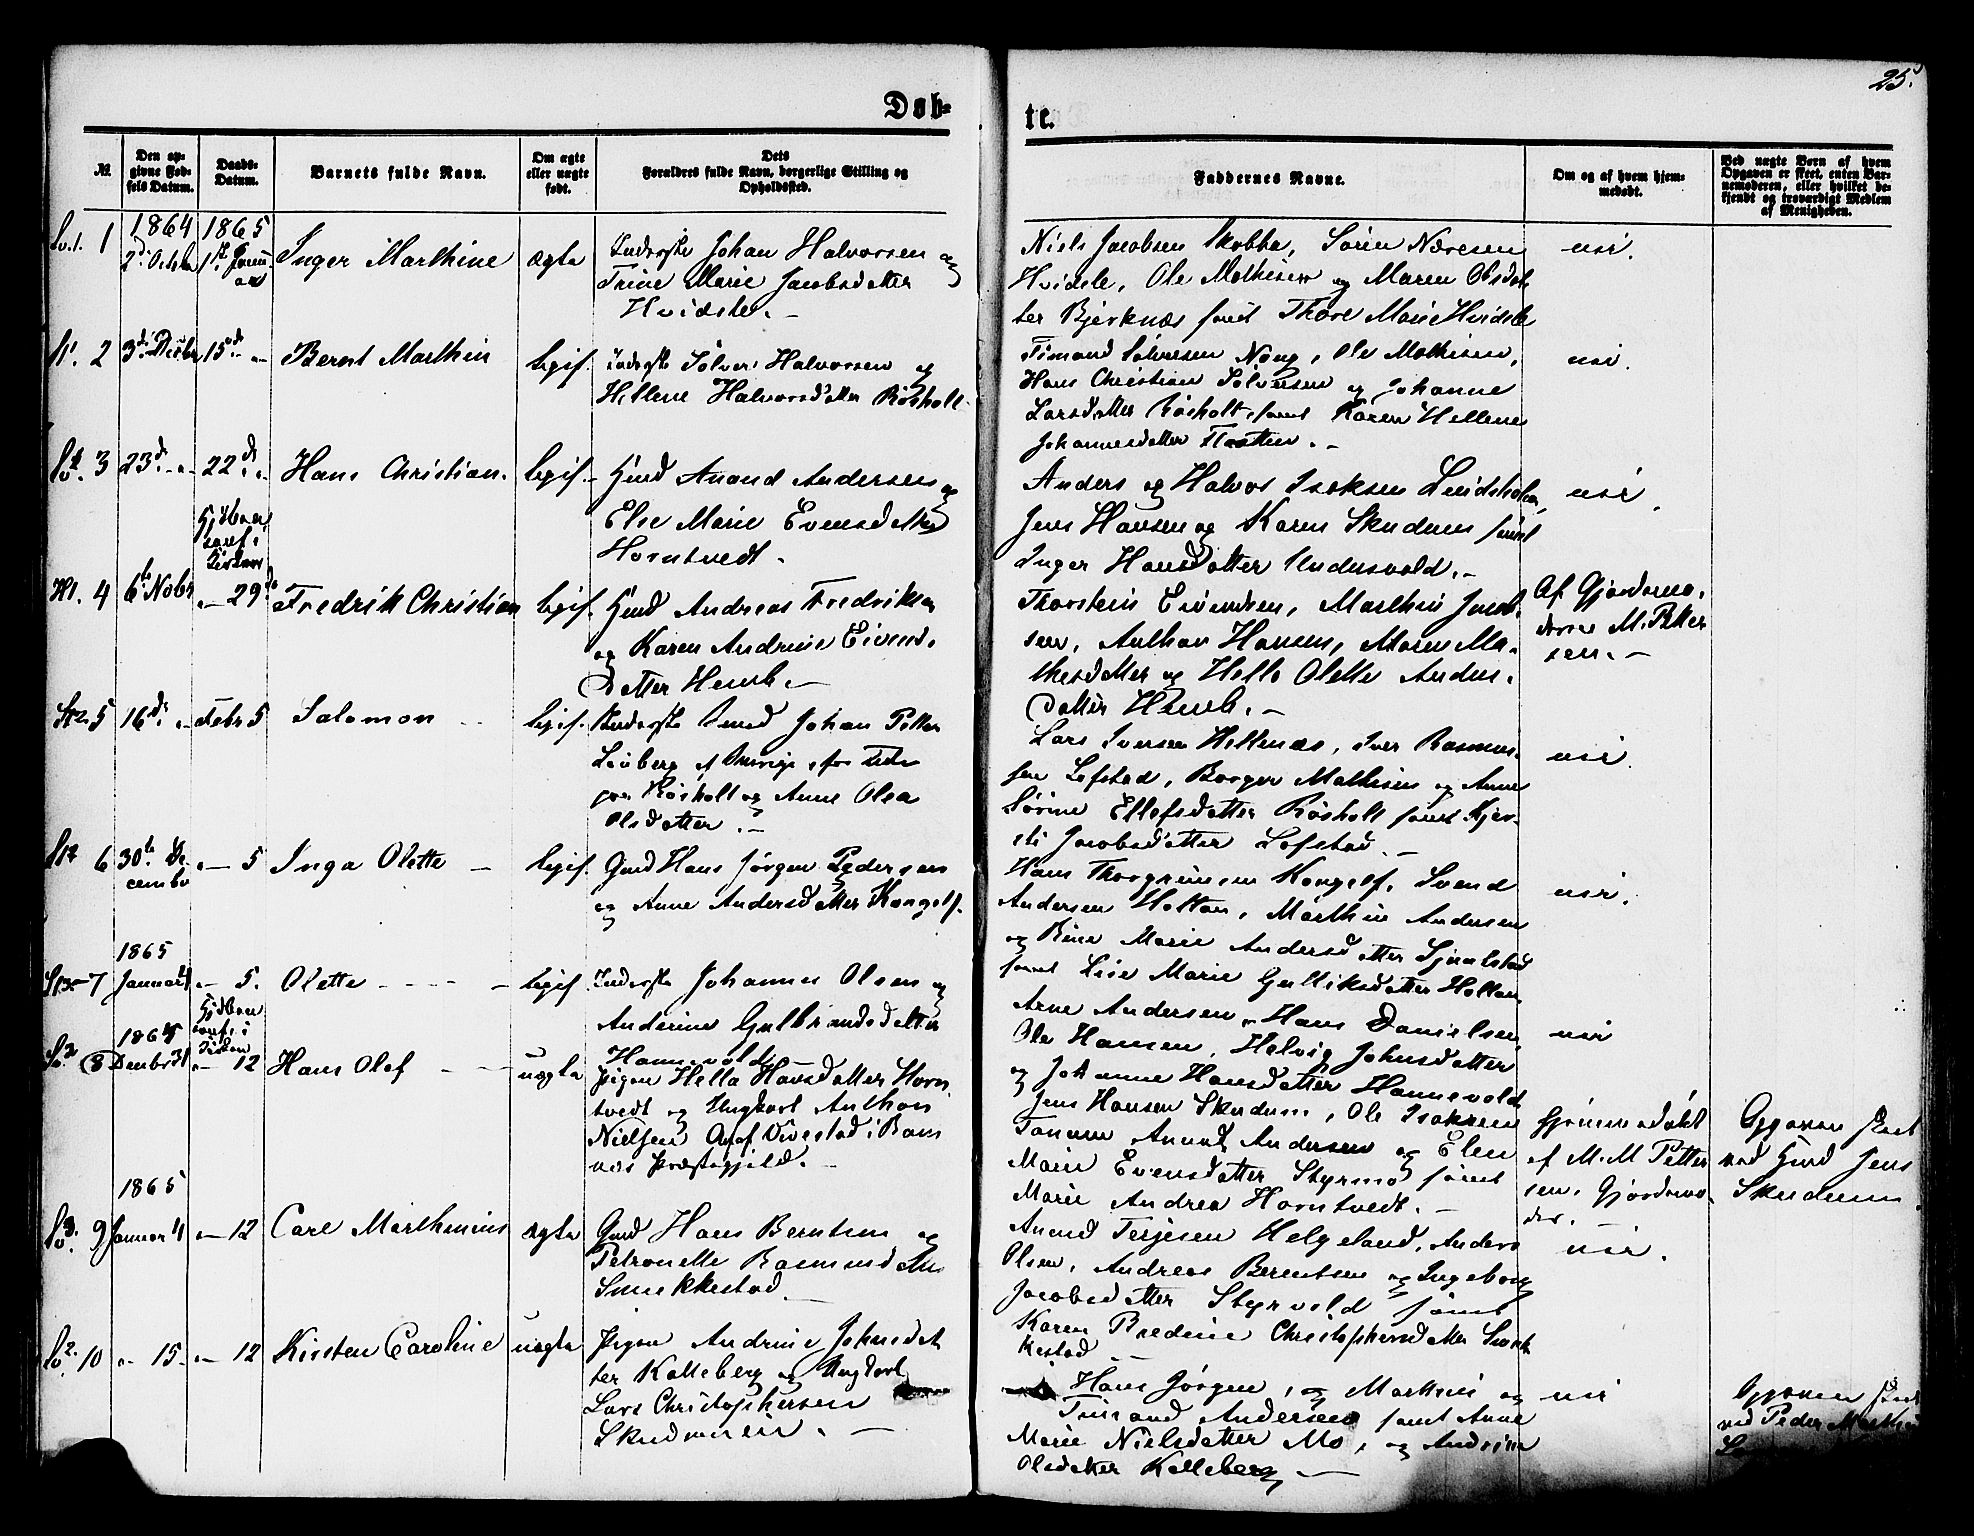 25.
Døb-
te.
№
Den op-
givne Fød-
sels Datum.
Daabs-
Datum.
Barnets fulde Navn.
Om ægte
eller uægte
født.
Dets
Forældres fulde Navn, borgerlige Stilling og
Opholdssted.
Faddernes Navne.
Om og af hvem hjem-
medøbt.
Ved uægte Børn af hvem
Opgaven er skeet, enten Bar-
nemoderen, eller hvilket be-
kjendt og troværdigt Medlem
af Menigheden.
1864
1865
1
Inger Marthine
ægte
Inderste Johan Halvorsen og
Trine Marie Jacobsdatter
Hvidste.
Niels Jacobsen Skobba, Sören
Hvidste, Ole Mathisen og Maren Olsdat-
ter Bjerknæs samt Thore Marie Hvidste
nei.
2
3d Decbr
15de
Bernt Marthin
legif.
Inderste Sölver Halvorsen og
Hellene Halvorsdatter Røsholt.
Ole Mathisen,
Hans Christian Sölversen og Johanne
Larsdatter Røsholt samt Karen Hellene
Johannesdatter
nei.
3
23d
22d
Hans Christian.
legif.
Gmd Anund Andersen og
Else Marie Evensdatter
Horntvedt.
Anders og Halvor Isaksen
Jens Hansen og Karen Skudem samt
Inger Hansdatter
nei.
4
6te Nobr
29de
Fredrik Christian
legif.
Gmd Andreas Fredriksen
og Karen Andrine Eivend.
datter Hemb.
Thorstein Eivendsen, Marthin Jacob-
sen, Anthon Hansen, Maren Ma-
thesdatter og Helle Olette Anders.
datter Hemb.
Af Gjordemo.
deren M. Petter
sen.
5
16de
Febr 5
Salomon
legif.
Inderste Smed Johan Petter
Røsholt og Anne Olea
Olsdatter.
Lars Iversen Hellenæs, Iver Rasmus-
sen Lofstad, Borger Mathisen og Anne
Sörine Ellefsdatter Røsholt samt Kjer-
sti Jacobsdatter Lofstad.
nei.
6
30te De
cember
5
Inga Olette
legif.
Gmd Hans Jørgen Pedersen
og Anne Andersdatter Kongelf.
Hans Thorgrimsen Kongelf, Svend
Andersen Holtan, Marthin Andersen
og Rine Marie Andersdatter
samt Lise Marie Gulliksdatter Holtan
nei.
1865
7
Januar 4
5.
Olette
legif.
Inderste Johannes Olsen og
Anderine Gulbrandsdatter
Hannevold
Arne Andersen, Hans Danielsen,
Ole Hansen, Helvig Johnsdatter
og Johanne Hansdatter Hannevold
nei
1864
8
Decmbr 31
12
Hans Olef
uægte
Pigen Hella Hansdatter Horn
tvedt og Ungkarl Anthon
Nielsen Aasaf Vivestad i Ram
næs Præstegjeld.
Jens Hansen Skudem, Ole Isaksen
Tanum Anund Andersen og Elen
Marie Evensdatter Styrmo samt
Marie Andrea Horntvedt.
Hjemmedøbt
af M. M Petter
sen, Gjordemo-
der.
Opgaven skeet
ved Gmd Jens
Skudem
1865
9
Januar 4
12
Carl Marthinius
ægte
Gmd Hans Berntsen og
Petronelle Rasmusdatter
Smekkestad
Anund Terjesen Helgeland, Anders
Olsen, Andreas Berentsen og Ingeborg
Jacobsdatter Styrvold samt
Karen Bredine Christophersdatter Smek
kestad
nei.
10
15
12
Kirsten Caroline
uægte
Pigen Andrine Johnsdat
ter Kalleberg og Ungkarl
Lars Christophersen
Hans Jørgen, og Marthin og
Andersen samt Anne
Marie Nielsdatter Mo, og Andrine
Olsdatter Kalleberg
nei
Opgaven skeet
ved Peder